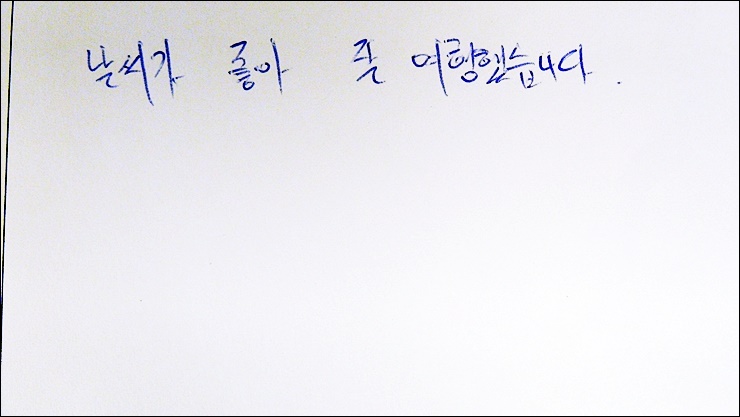 날씨가 좋아 여행했습니다.